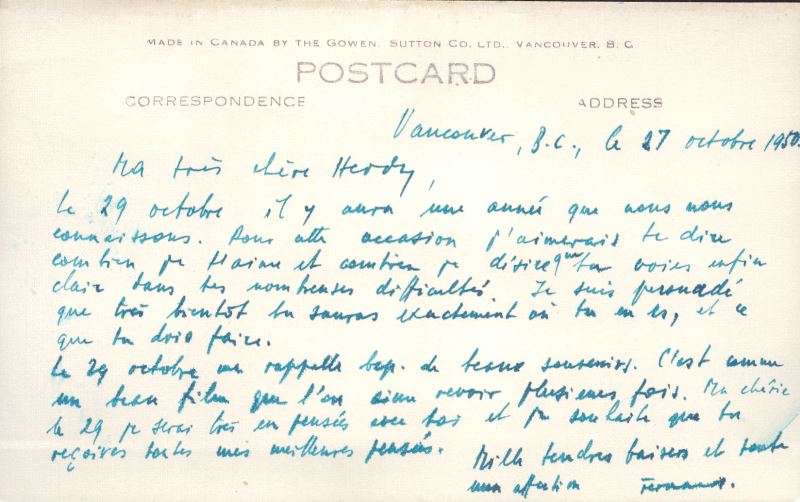 MADE IN CANADA BY THE GOWEN, SUTTON CO. LTD., VANCOUVER, B. C.
POSTCARD
CORRESPONDENCE ADDRESS
Vancouver, B.C., le 27 octobre 1950.
Ma très chère Heddy,
le 29 octobre il y aura une année que nous nous
connaissons. Pour cette occasion j'aimerais te dire
combien je t'aime et combien je désire que tu voies enfin
clair dans tes nombreuses difficultés. Je suis persuadé
que très bientôt tu sauras exactement où tu en es, et ce
que tu dois faire.
Le 29 octobre me rappelle bcp. de beaux souvenirs. C'est comme
un beau film que l'on aime revoir plusieurs fois. Ma chérie
le 29 je serai très en pensées avec toi et je souhaite que tu
reçoives toutes mes meilleures pensées.
Mille tendres baisers et toute
mon affection